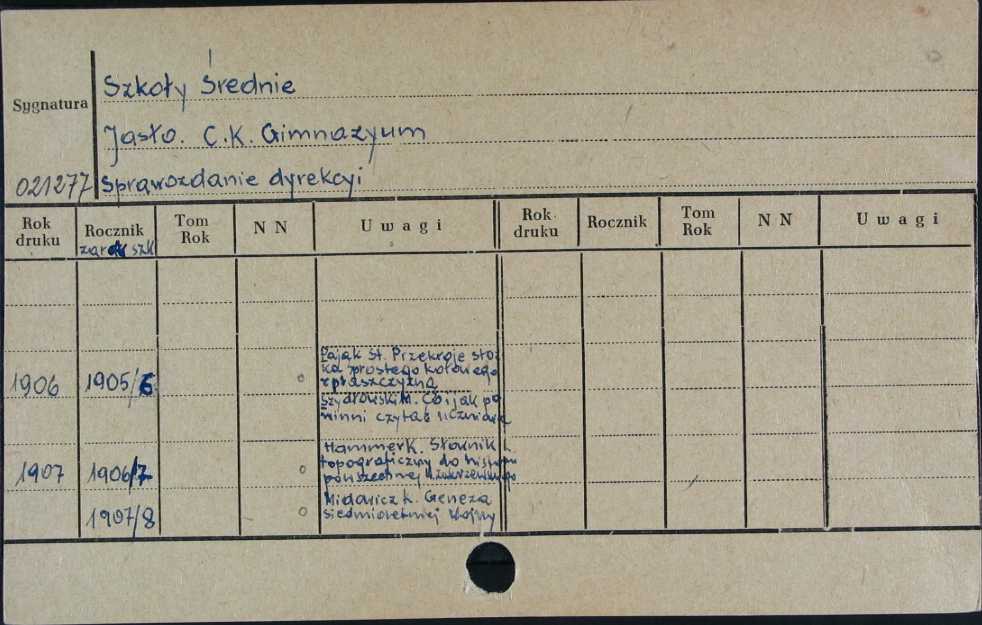 Szkoły Średnie
Sygnatura
Jasło. C.K. Gimnazyum
021277 Sprawozdanie dyrekcyi
Rok druku Rocznik za rok szk Tom Rok N N Uwagi Rok druku Rocznik Tom Rok N N Uwagi
Pająk St. Przekroje stoż
ka prostego kołowego
1906 1905/6 o z płaszczyzną
Szydłowski M. Co i jak po
winni czytać uczniowie
Hammer K. Słownik
topograficzny do historyi
1907 1906/7 o powszechnej Zakrzewskiego
Midowicz K. Geneza
1907/8 o siedmioletniej wojny